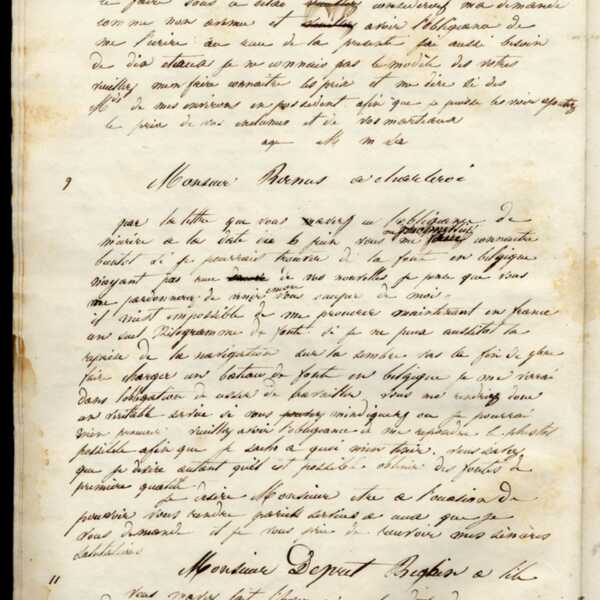 le faire sous ce délai veuillez considérer ma demande
comme non avenue et avoir l'obligeance de
me l'écrire au reçu de la présente j'ai aussi besoin
de dix je ne connais pas le modèle des votres
veuillez m'en faire connaitre les prix et me dire si des
de mes environs en possèdent afin que je puisse les voir
le prix de vos enclumes et de vos marteaux
9 Monsieur a charleroi
par la lettre que vous avez eu l'obligeance de
m'ecrire a la date du 6 juin vous me connaitre
bientot si je pourrais trouver de la fonte en belgique
n'ayant pas recu de vos nouvelles je pense que vous
me pardonnerez de vous de moi
il m'est impossible de me procurer maintenant en france
un seul Kilogramme de fonte. Si je ne peux aussitot la
reprise de la navigation sur la sambre
faire charger un bateau de fonte en belgique je me verrai
dans l'obligation de cesser de travailler. Vous me rendrez donc
un veritable service si vous m'indiquez ou je pourrai
m'en procurer. veuillez avoir l'obligeance de me repondre le plustot
possible afin que je sache a quoi m'en tenir. Vous savez
que je desire autant qu'il est possible obtenir des fontes de
premiere qualité
je desire Monsieur etre a l'occasion de
pouvoir vous rendre pareil service a ceux que je
vous demande et je vous prie de recevoir mes sincères
salutations
11 Monsieur a
vous m'avez fait